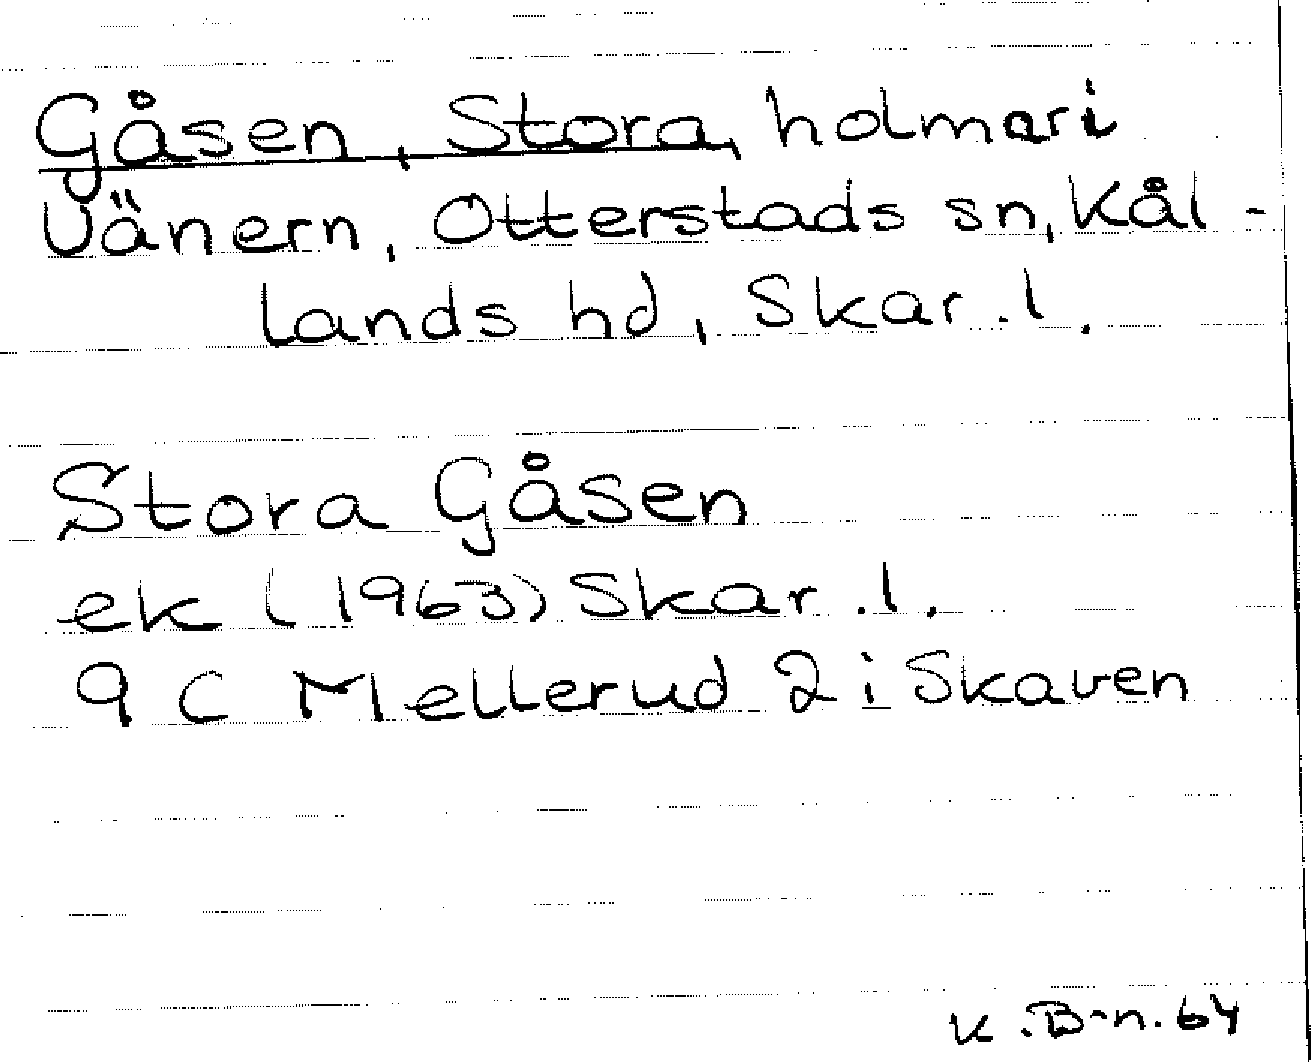 Gåsen, Stora, holmar i
Vänern, Otterstads sn, Kål-
lands hd, Skar. l.
Stora Gåsen
ek (1963) Skar. l.
9 C Mellerud 2 i Skaven
K. B-n. 64